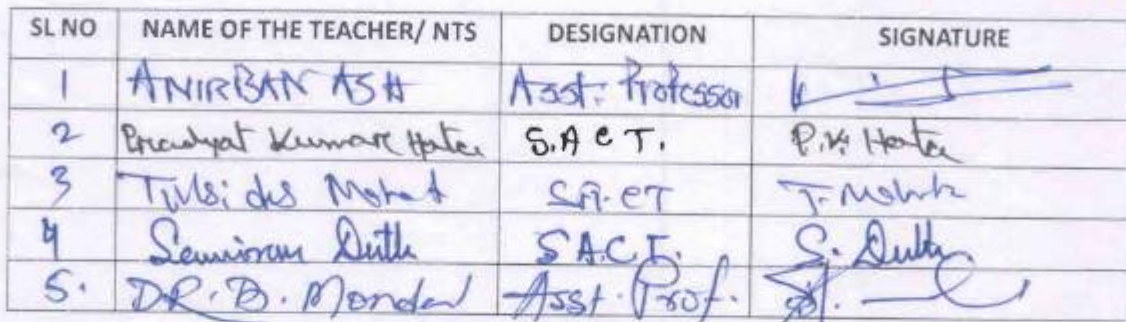 SL NO NAME OF THE TEACHER/ NTS DESIGNATION SIGNATURE
1 ANIRBAN ASH Asst. Professor
2 Pradyat Kumar Hater S.A C T. P.K. Hater
3 Tulsi das S.A.CT T.
4 Dutta S.A.C.T. S. Dutta
5. DR. B. Mondal Asst. Prof.